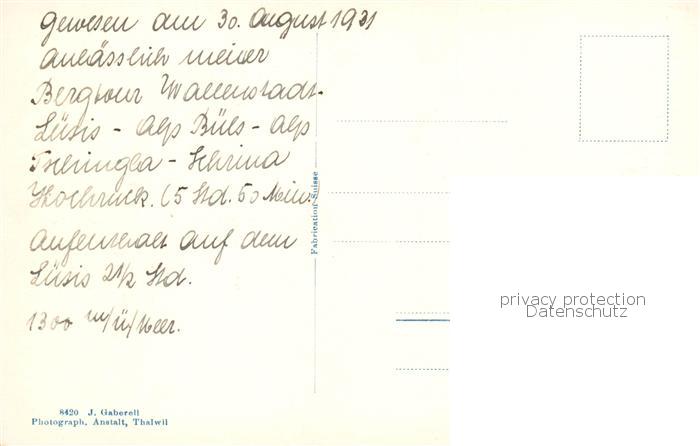 gewesen am 30. August 1931
anlässlich meiner
Bergtour Wallenstadt-
Lüsis - Alp Büls - Alp
Tschingla - Schrina
Hochruck. (5 Std. 50 Min.)
Aufenthalt auf dem
Lüsis 2½ Std.
1300 m/ü/Meer.
Fabrication Suisse
privacy protection
Datenschutz
8420 J. Gaberell
Photograph. Anstalt, Thalwil